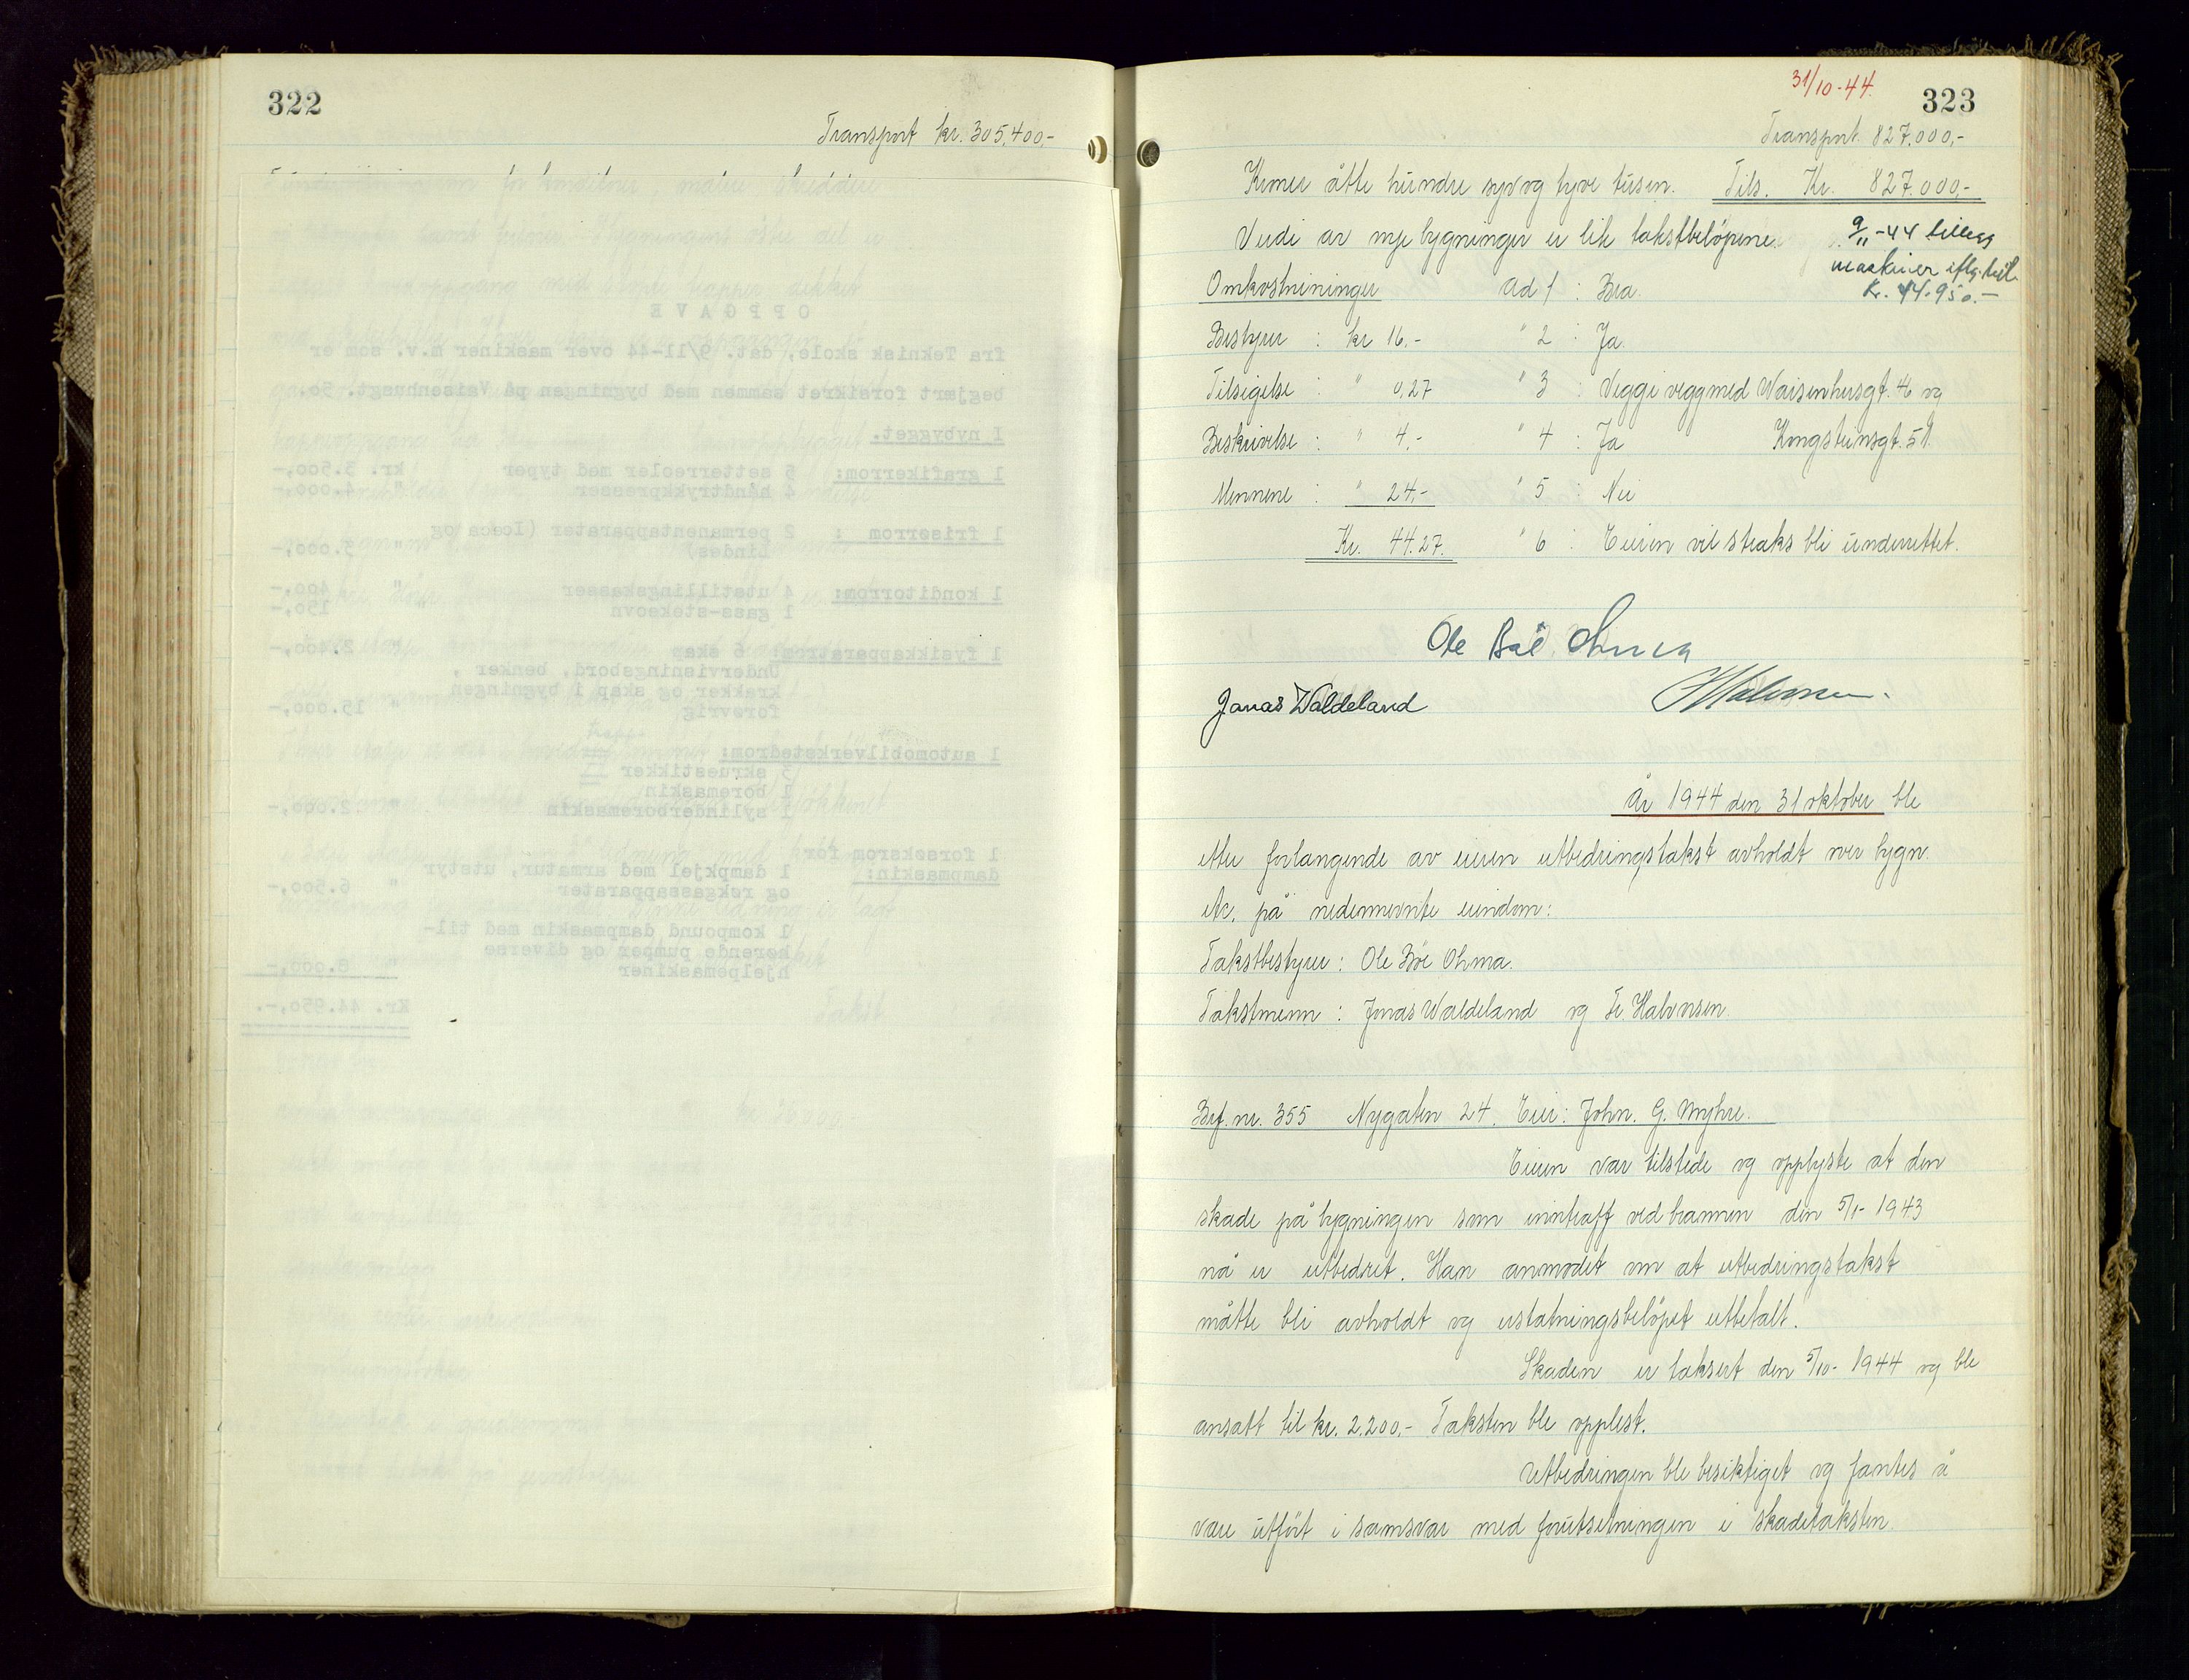 322
Transport kr. 305.400,-
OPPGAVE
fra Teknisk skole, dat. 9/11-44 over maskiner m.v. som er
begjært forsikret sammen med bygningen på Vaisenhusgt. 50.
I nybygget.
1 grafikerrom: 6 setterreoler med typer kr. 3.500,-
4 håndtrykkpresser " 4.000,-
1 frisørrom : 2 permanentapparater (Icaca og
Lindes) " 3.000,-
1 konditorrom: 4 utstillingskasser " 400,-
1 gass-stekeovn " 150,-
1 fysikkapparatrom: 6 skap " 2.400,-
Undervisningsbord, benker,
krakker og skap i bygningen
forøvrig " 15.000,-
1 automobilverkstedrom:
3 skruestikker
1 boremaskin
1 sylinderboremaskin " 2.000,-
1 forsøksrom for
dampmaskin: 1 dampkjel med armatur, utstyr
og røkgassapparater " 6.500,-
1 kompound dampmaskin med til-
hørende pumper og diverse
hjelpemaskiner " 8.000,-
Kr. 44.950,-.
31/10-44.
323
Transport 827.000,-
Kroner åtte hundre syv og tyve tusen. Tils. Kr. 827.000,-
Verdi av nye bygninger er lik takstbeløpene.
9/11-44 tillegg
maskiner iflg.
Kr. 44.950.-
Omkostninger Ad 1 : Bra.
Bestyrer : kr 16.- " 2 : Ja.
Tilsigelse : " 0,27 " 3 : Vegg i vegg med Waisenhusgt. 46 og
Beskrivelse : " 4,- " 4 : Ja Kongsteinsgt. 51.
Mennene : " 24,- " 5 : Nei
Kr. 44.27. " 6 : Eieren vil straks bli underrettet.
Ole Böe Ohma
Jonas Waldeland
Halvorsen.
År 1944 den 31 oktober ble
etter forlangende av eieren utbedringstakst avholdt over bygn.
etc. på nedennevnte eiendom:
Takstbestyrer : Ole Böe Ohma.
Takstmenn : Jonas Waldeland og Fr. Halvorsen.
Brf. nr. 355 Nygaten 24. Eier: John. G. Myhre.
Eieren var tilstede og opplyste at den
skade på bygningen som inntraff ved brannen den 5/1- 1943
nå er utbedret. Han anmodet om at utbedringstakst
måtte bli avholdt og erstatningsbeløpet utbetalt.
Skaden er taksert den 5/10- 1944 og ble
ansatt til kr. 2.200.- Taksten ble opplest.
Utbedringen ble besiktiget og fantes å
være utført i samsvar med forutsetningen i skadetaksten.